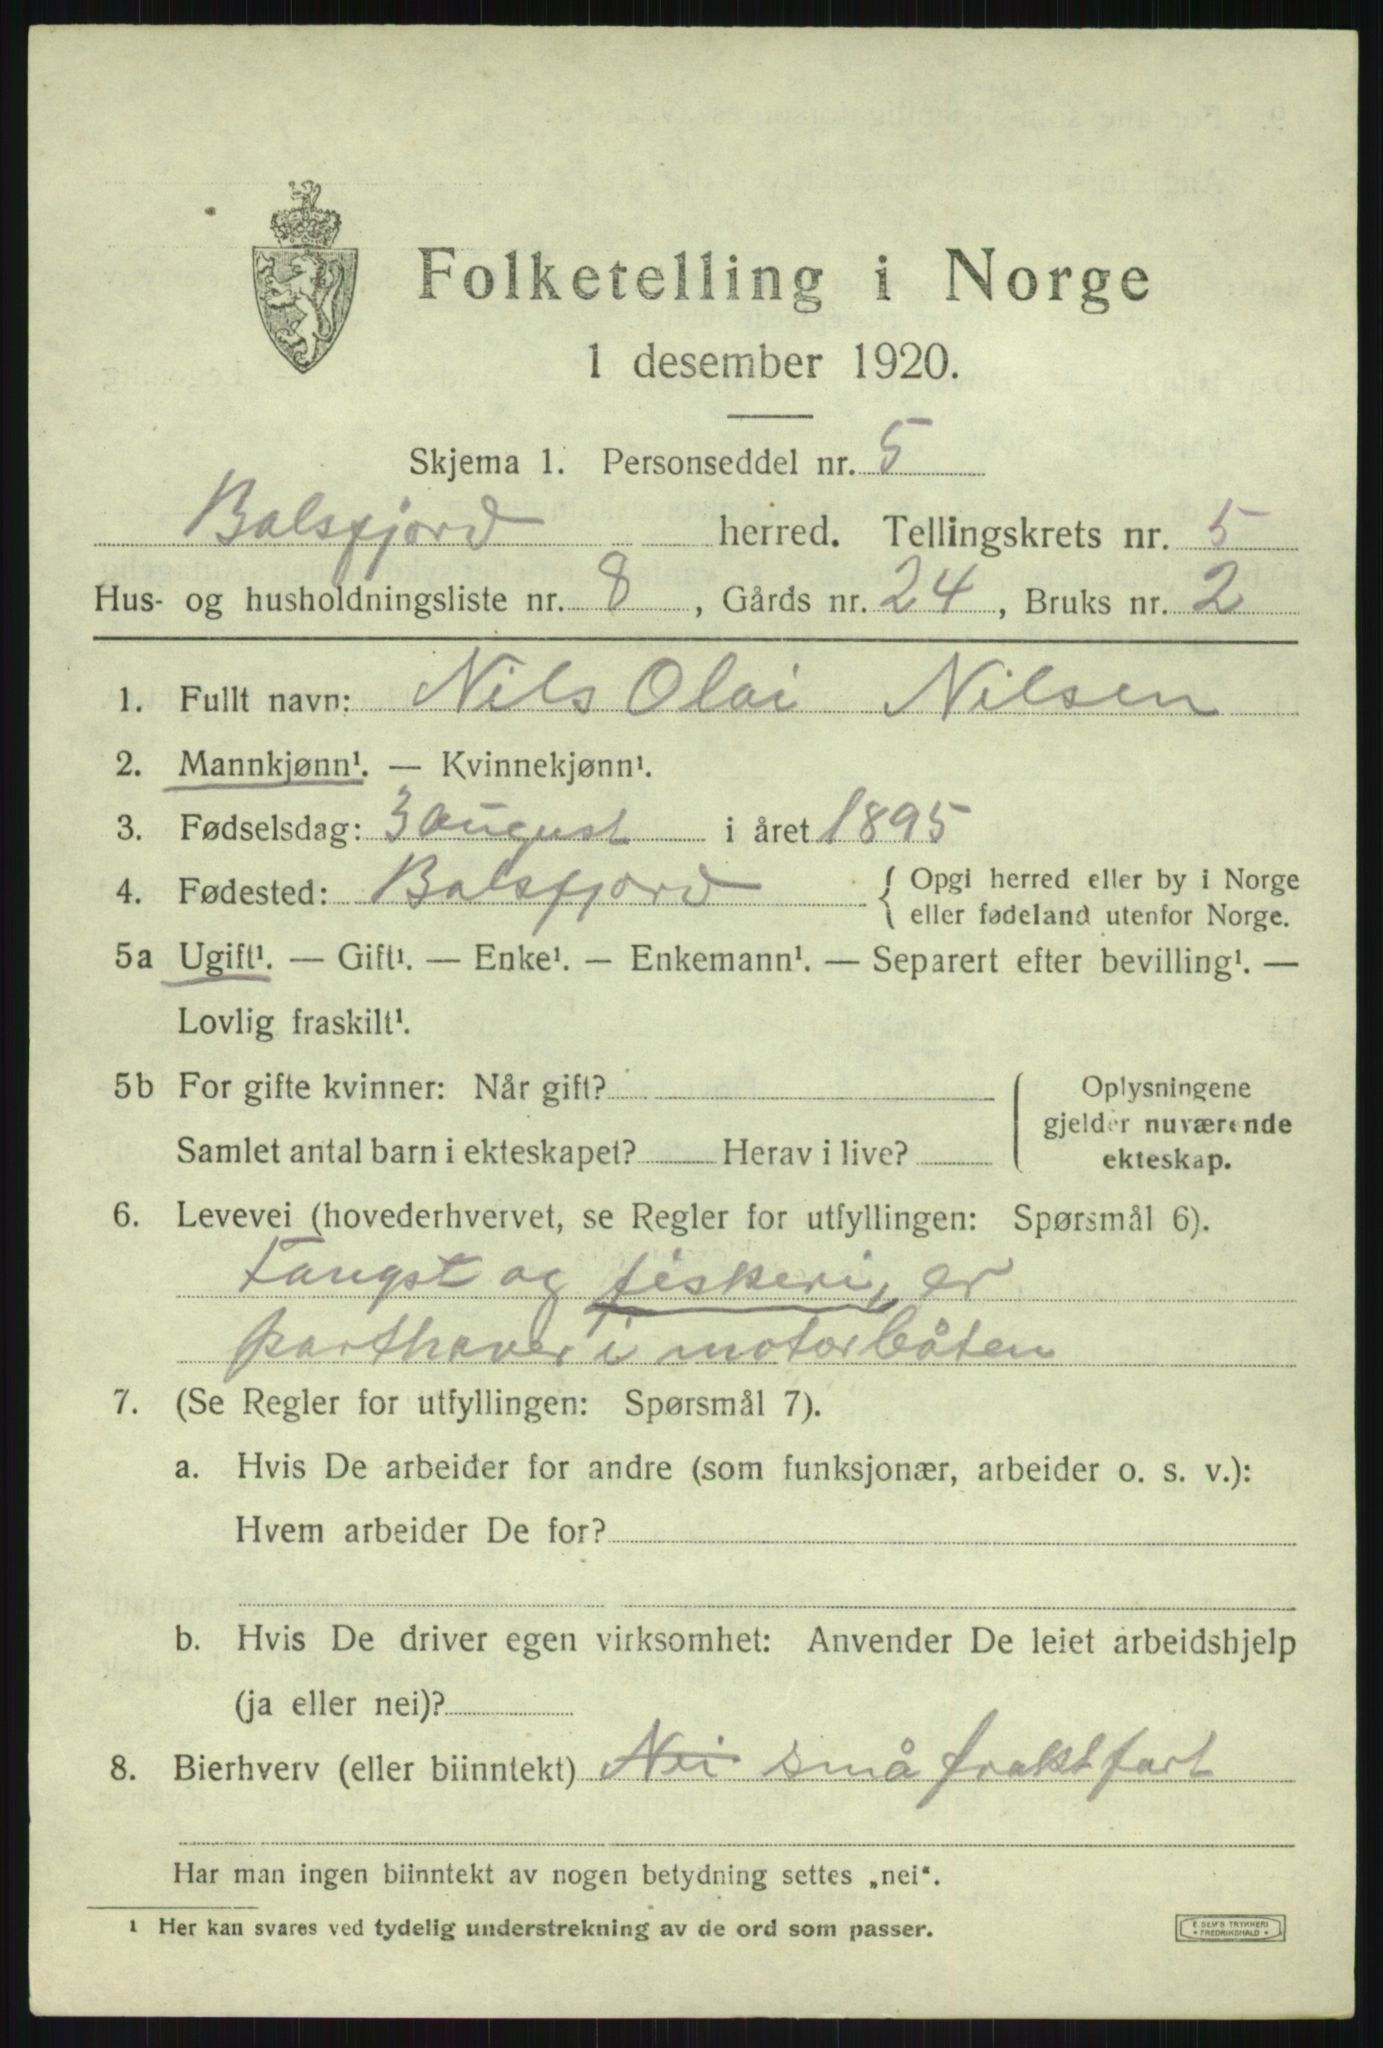 Folketelling i Norge
1 desember 1920.
Skjema 1. Personseddel nr. 5
Balsfjord herred. Tellingskrets nr. 5
Hus- og husholdningsliste nr. 8, Gårds nr. 24, Bruks nr. 2
1. Fullt navn: Nils Olai Nilsen
2. Mannkjønn¹. — Kvinnekjønn¹.
3. Fødselsdag: 3 august i året 1895
4. Fødested: Balsfjord { Opgi herred eller by i Norge
eller fødeland utenfor Norge.
5a Ugift¹. — Gift¹. — Enke¹. — Enkemann¹. — Separert efter bevilling¹. —
Lovlig fraskilt¹.
5b For gifte kvinner: Når gift?
Samlet antal barn i ekteskapet? Herav i live?
Oplysningene
gjelder nuværende
ekteskap.
6. Levevei (hovederhvervet, se Regler for utfyllingen: Spørsmål 6).
Fangst og fiskeri, er
parthaver i motorbåten
7. (Se Regler for utfyllingen: Spørsmål 7).
a. Hvis De arbeider for andre (som funksjonær, arbeider o. s. v.):
Hvem arbeider De for?
b. Hvis De driver egen virksomhet: Anvender De leiet arbeidshjelp
(ja eller nei)?
8. Bierhverv (eller biinntekt) Nei små fraktfart
Har man ingen biinntekt av nogen betydning settes „nei“.
¹ Her kan svares ved tydelig understrekning av de ord som passer.
E. SEM'S TRYKKERI
* FREDRIKSHALD *